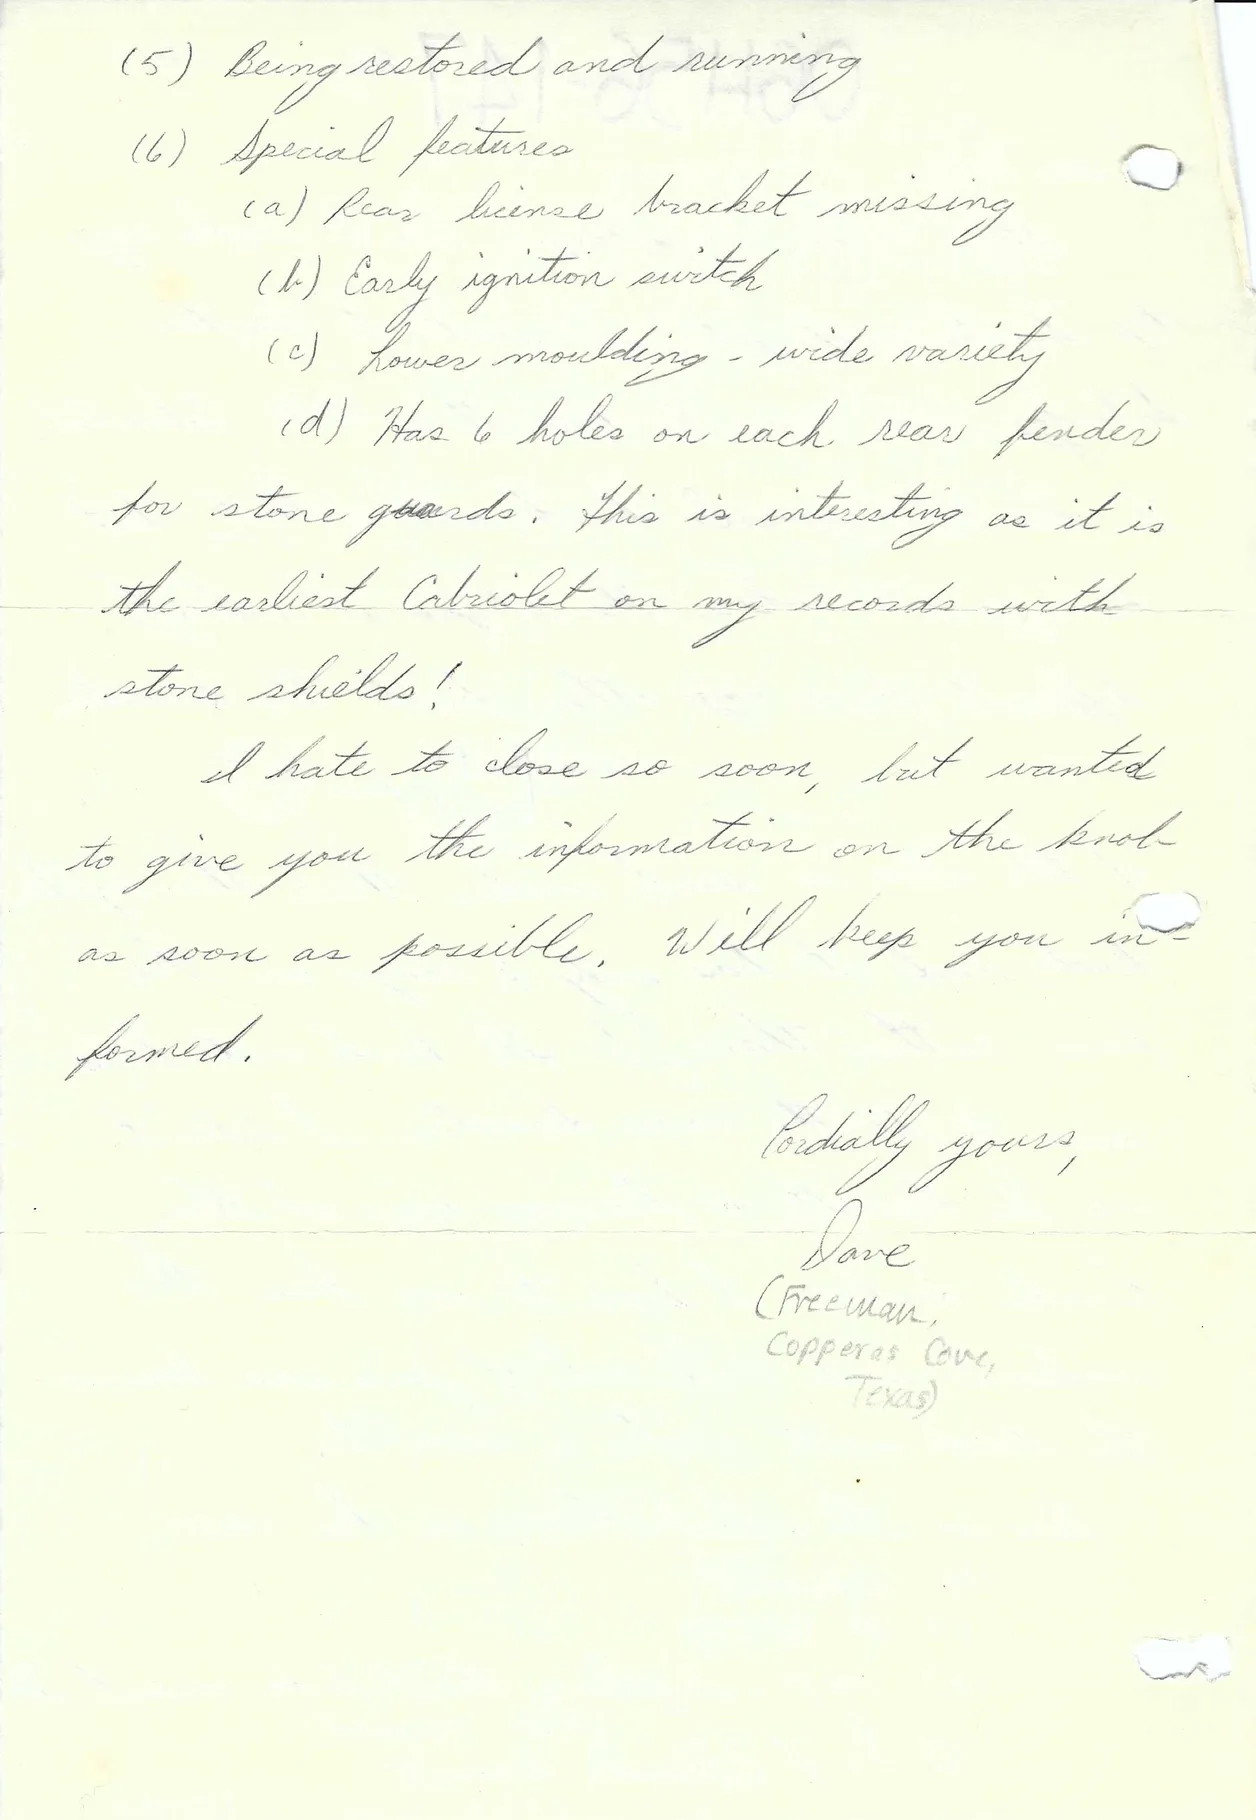 (5) Being restored and running
(6) Special features
(a) Rear license bracket missing
(b) Early ignition switch
(c) Lower moulding - wide variety
(d) Has 6 holes on each rear fender
for stone guards. This is interesting as it is
the earliest Cabriolet on my records with
stone shields!
I hate to close so soon, but wanted
to give you the information on the knob
as soon as possible. Will keep you in-
formed.
Cordially yours,
Dave
(Freeman,
Copperas Cove,
Texas)